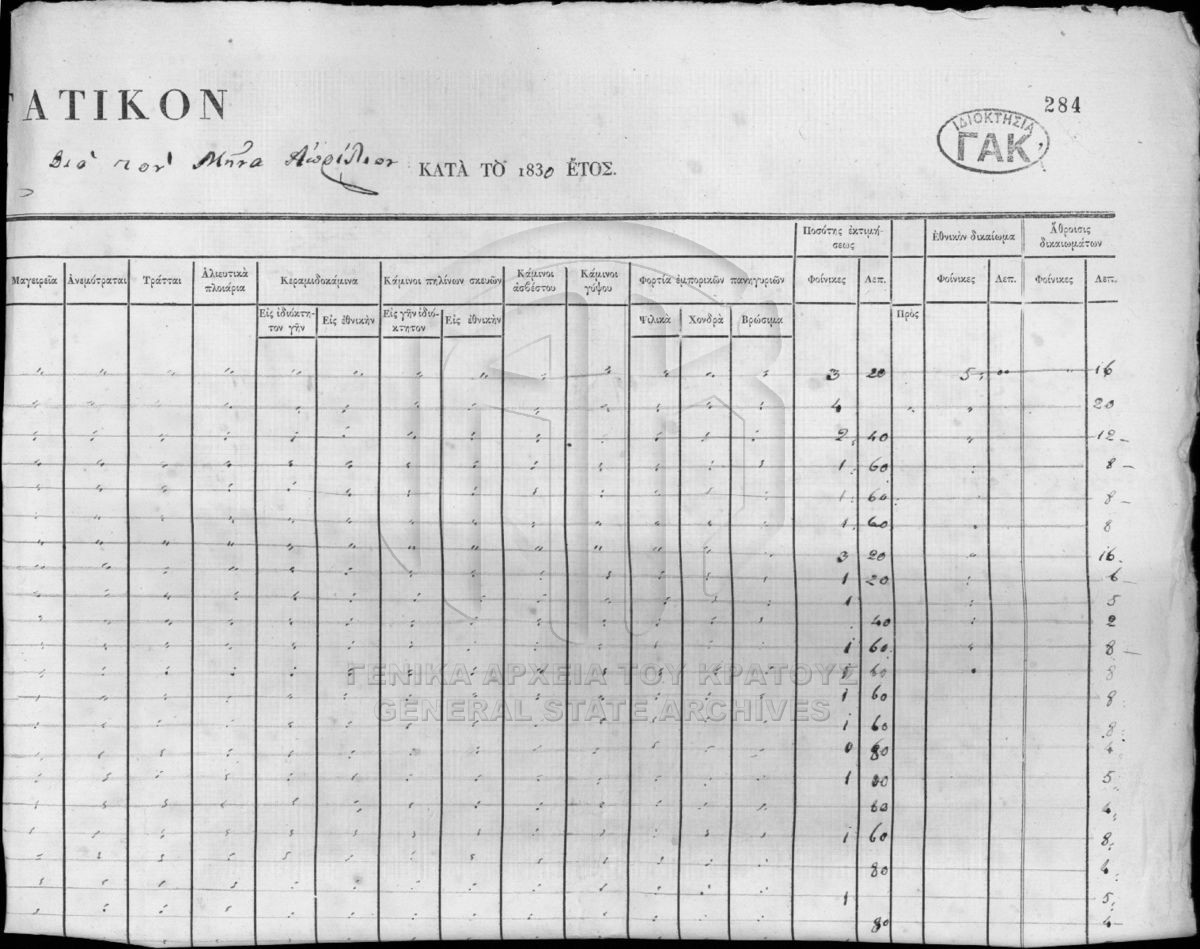 ΤΑΤΙΚΟΝ
284
ΙΔΙΟΚΤΗΣΙΑ
ΓΑΚ
διὰ τὸν Μῆνα Ἀπρίλιον ΚΑΤΑ ΤΟ 1830 ΕΤΟΣ.
Ποσότης ἐκτιμή-
σεως
Ἐθνικὸν δικαίωμα
Ἄθροισις
δικαιωμάτων
Μαγειρεῖα Ἀνεμότραται Τράτται Ἁλιευτικὰ
πλοιάρια
Κεραμιδοκάμινα Κάμινοι πηλίνων σκευῶν Κάμινοι
ἀσβέστου
Κάμινοι
γύψου
Φορτία ἐμπορικῶν πανηγυρίων Φοίνικες Λεπ. Φοίνικες Λεπ. Φοίνικες Λεπ.
Εἰς ἰδιόκτη-
τον γῆν
Εἰς ἐθνικὴν Εἰς γῆν ἰδιό-
κτητον
Εἰς ἐθνικὴν Ψιλικὰ Χονδρὰ Βρώσιμα Πρὸς
3 20 5 16
4 20
2 40 12
1 60 8
1 60 8
1 60 8
3 20 16
1 20 6
1 5
40 2
1 60 8
1 60 8
1 60 8
1 60 8
0 80 4
1 5
60 4
1 60 8
80 4
1 5
80 4
ΓΕΝΙΚΑ ΑΡΧΕΙΑ ΤΟΥ ΚΡΑΤΟΥΣ
GENERAL STATE ARCHIVES